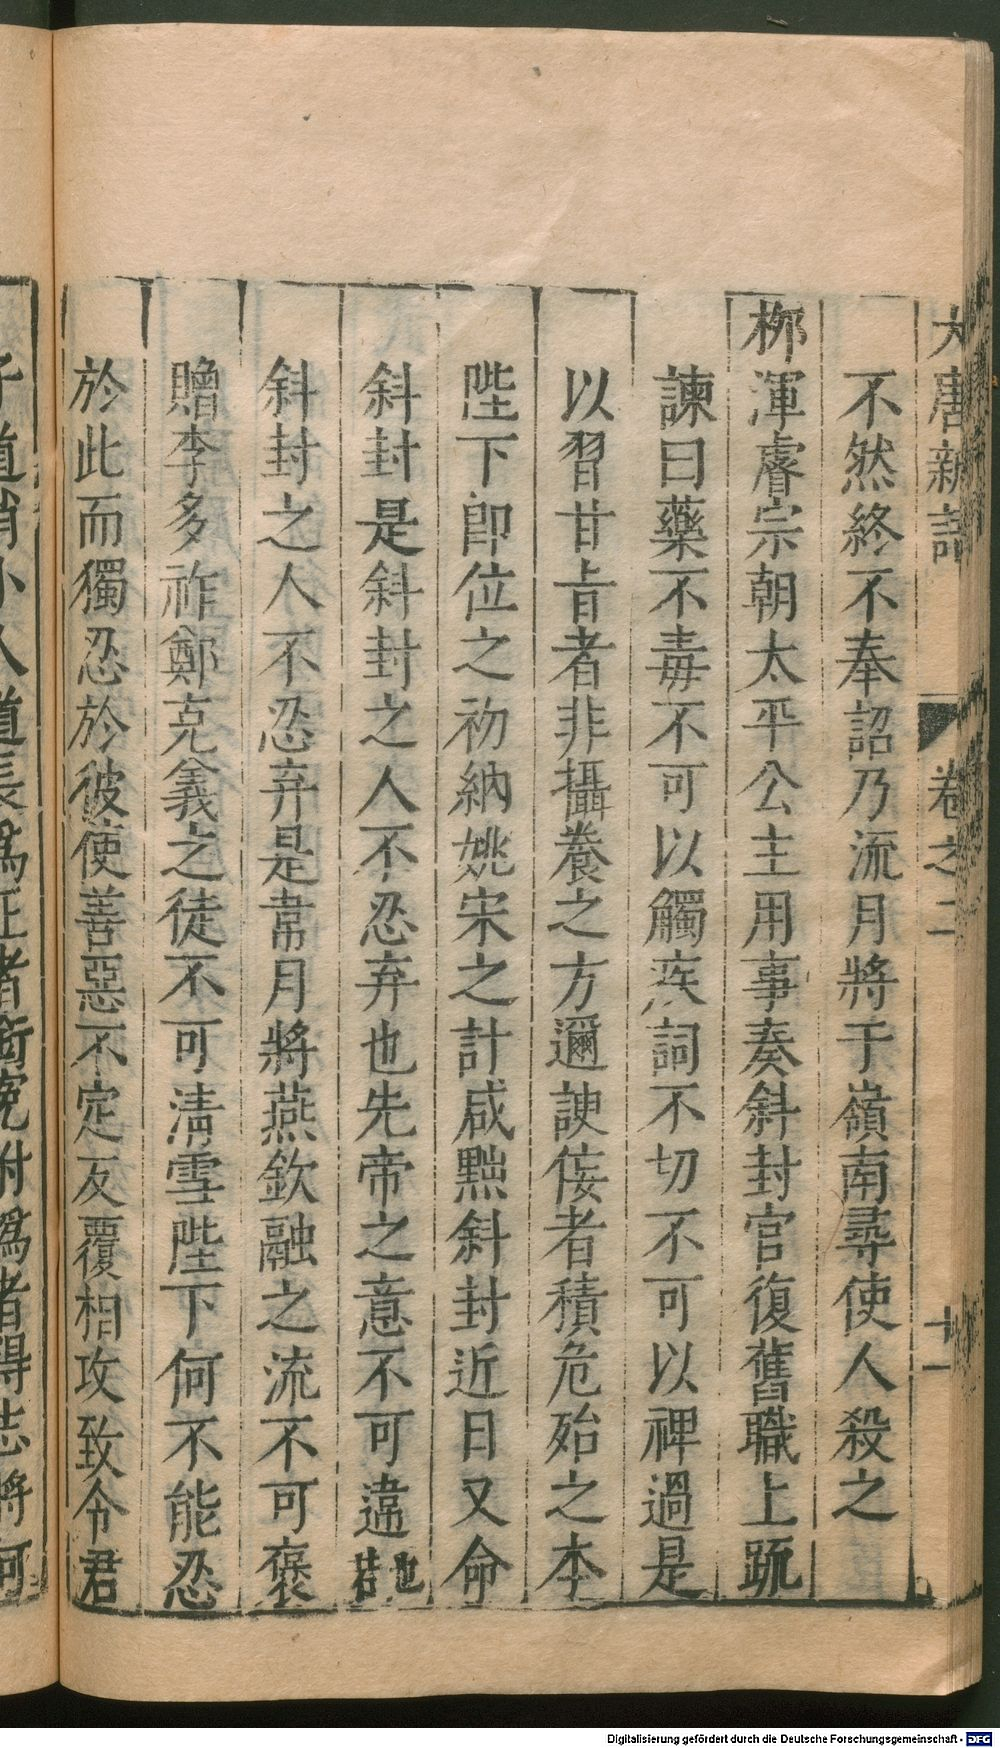 大唐新語 卷之二 十一
不然終不奉詔乃流月將于嶺南尋使人殺之
栁渾睿宗朝太平公主用事奏斜封官復舊職上䟽
諫曰藥不毒不可以觸疾詞不切不可以裨過是
以習甘旨者非攝養之方邇諛佞者積危殆之本
陛下卽位之初納姚宋之計咸黜斜封近日又命
斜封是斜封之人不忍弃也先帝之意不可違也若
斜封之人不忍弃是韋月將燕欽融之流不可褒
贈李多祚鄭克義之徒不可淸雪陛下何不能忍
於此而獨忍於彼使善惡不定反覆相攻致令君
子道消小人道長爲正者銜寃附僞者得志將何
Digitalisierung gefördert durch die Deutsche Forschungsgemeinschaft - DFG